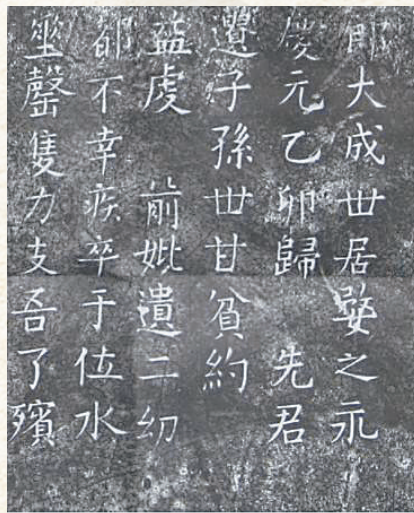 郎大成世居婺之永
慶元乙卯歸 先君
遷子孫世甘貧約
益虔 前妣遺二幼
都不幸疾卒于位水
罄隻力支吾了殯